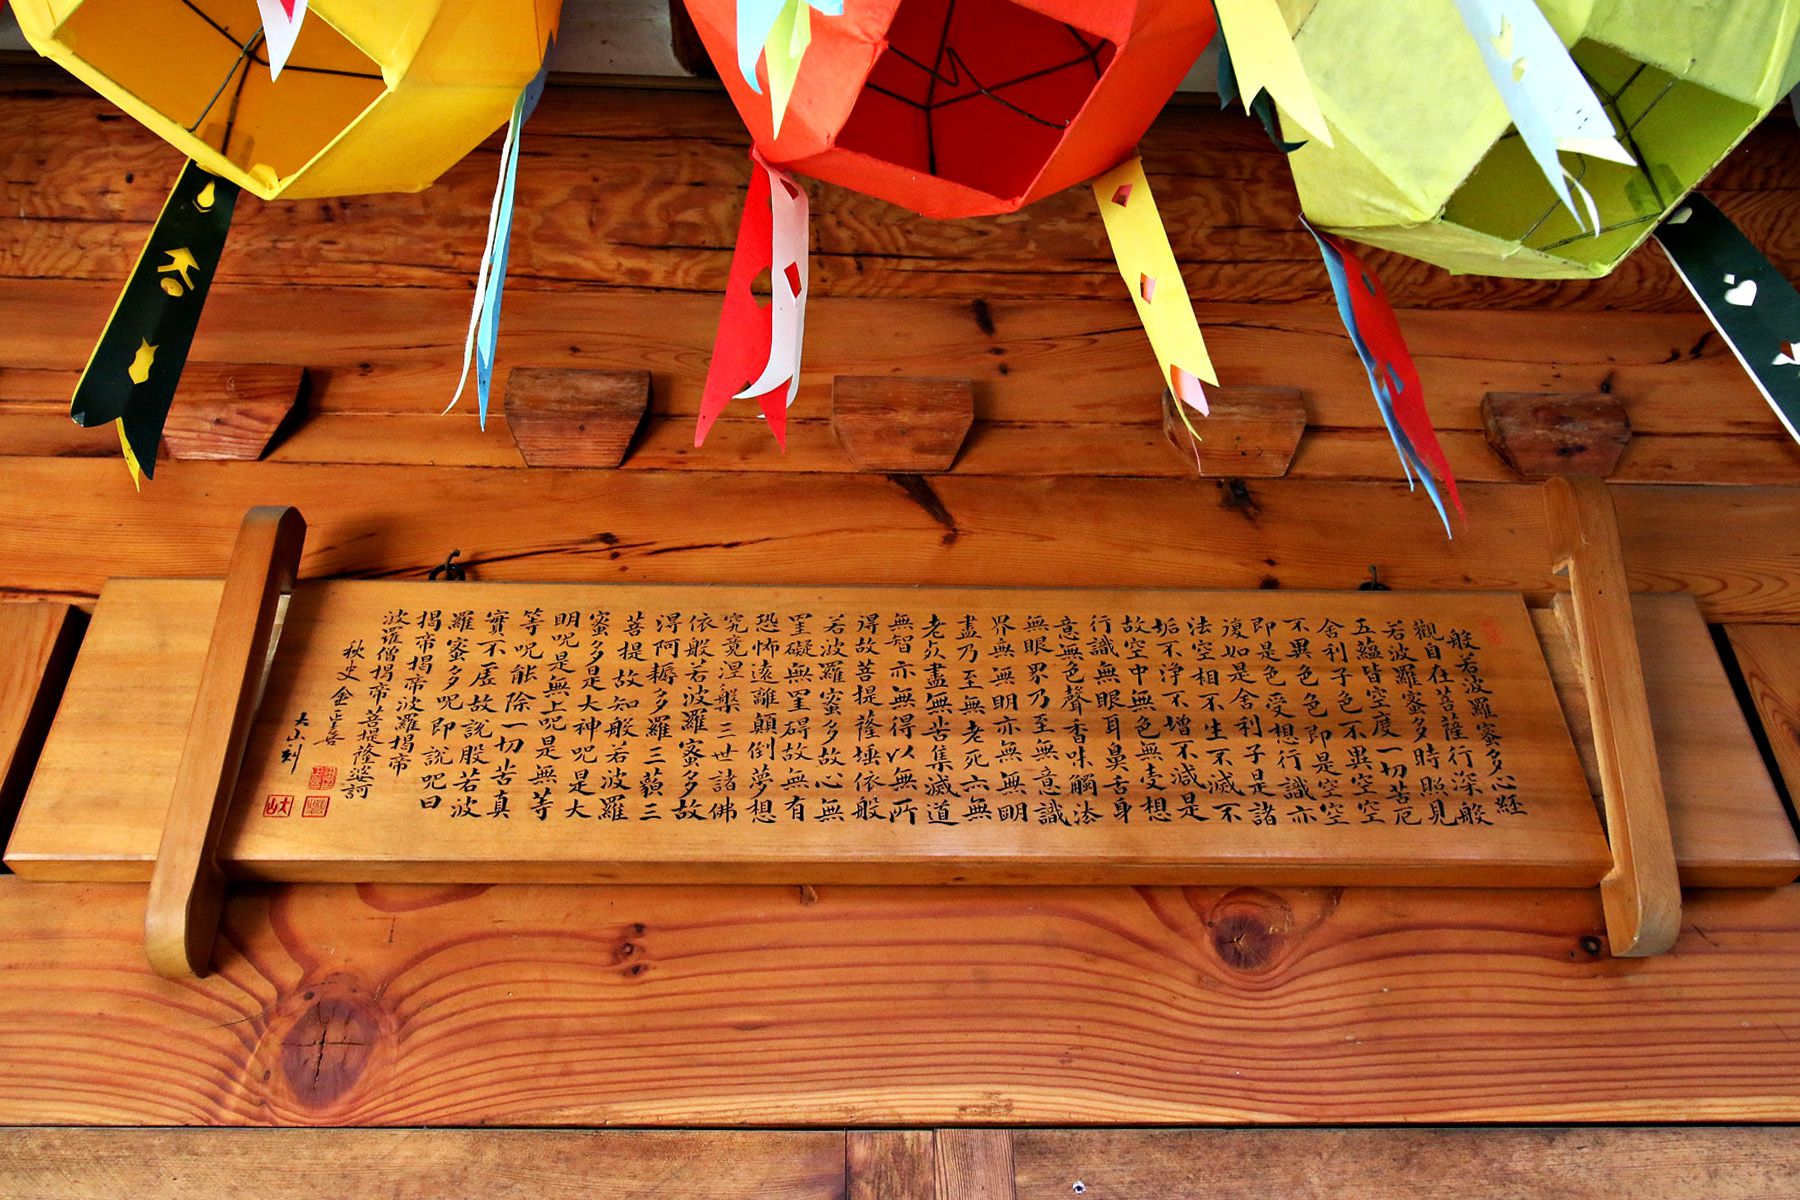 般若波羅蜜多心経
觀自在菩薩行深般
若波羅蜜多時照見
五蘊皆空度一切苦厄
舍利子色不異空空
不異色色即是空空
即是色受想行識亦
復如是舍利子是諸
法空相不生不滅不
垢不浄不增不減是
故空中無色無受想
行識無眼耳鼻舌身
意無色聲香味觸法
無眼界乃至無意識
界無無明亦無無明
盡乃至無老死亦無
老死盡無苦集滅道
無智亦無得以無所
得故菩提薩埵依般
若波羅蜜多故心無
罣礙無罣碍故無有
恐怖遠離顛倒夢想
究竟涅槃三世諸佛
依般若波羅蜜多故
得阿耨多羅三藐三
菩提故知般若波羅
蜜多是大神呪是大
明呪是無上呪是無等
等呪能除一切苦真
實不虛故說般若波
羅蜜多呪即說呪曰
揭帝揭帝波羅揭帝
波羅僧揭帝菩提薩婆訶
秋史 金正喜
大山刻
大山